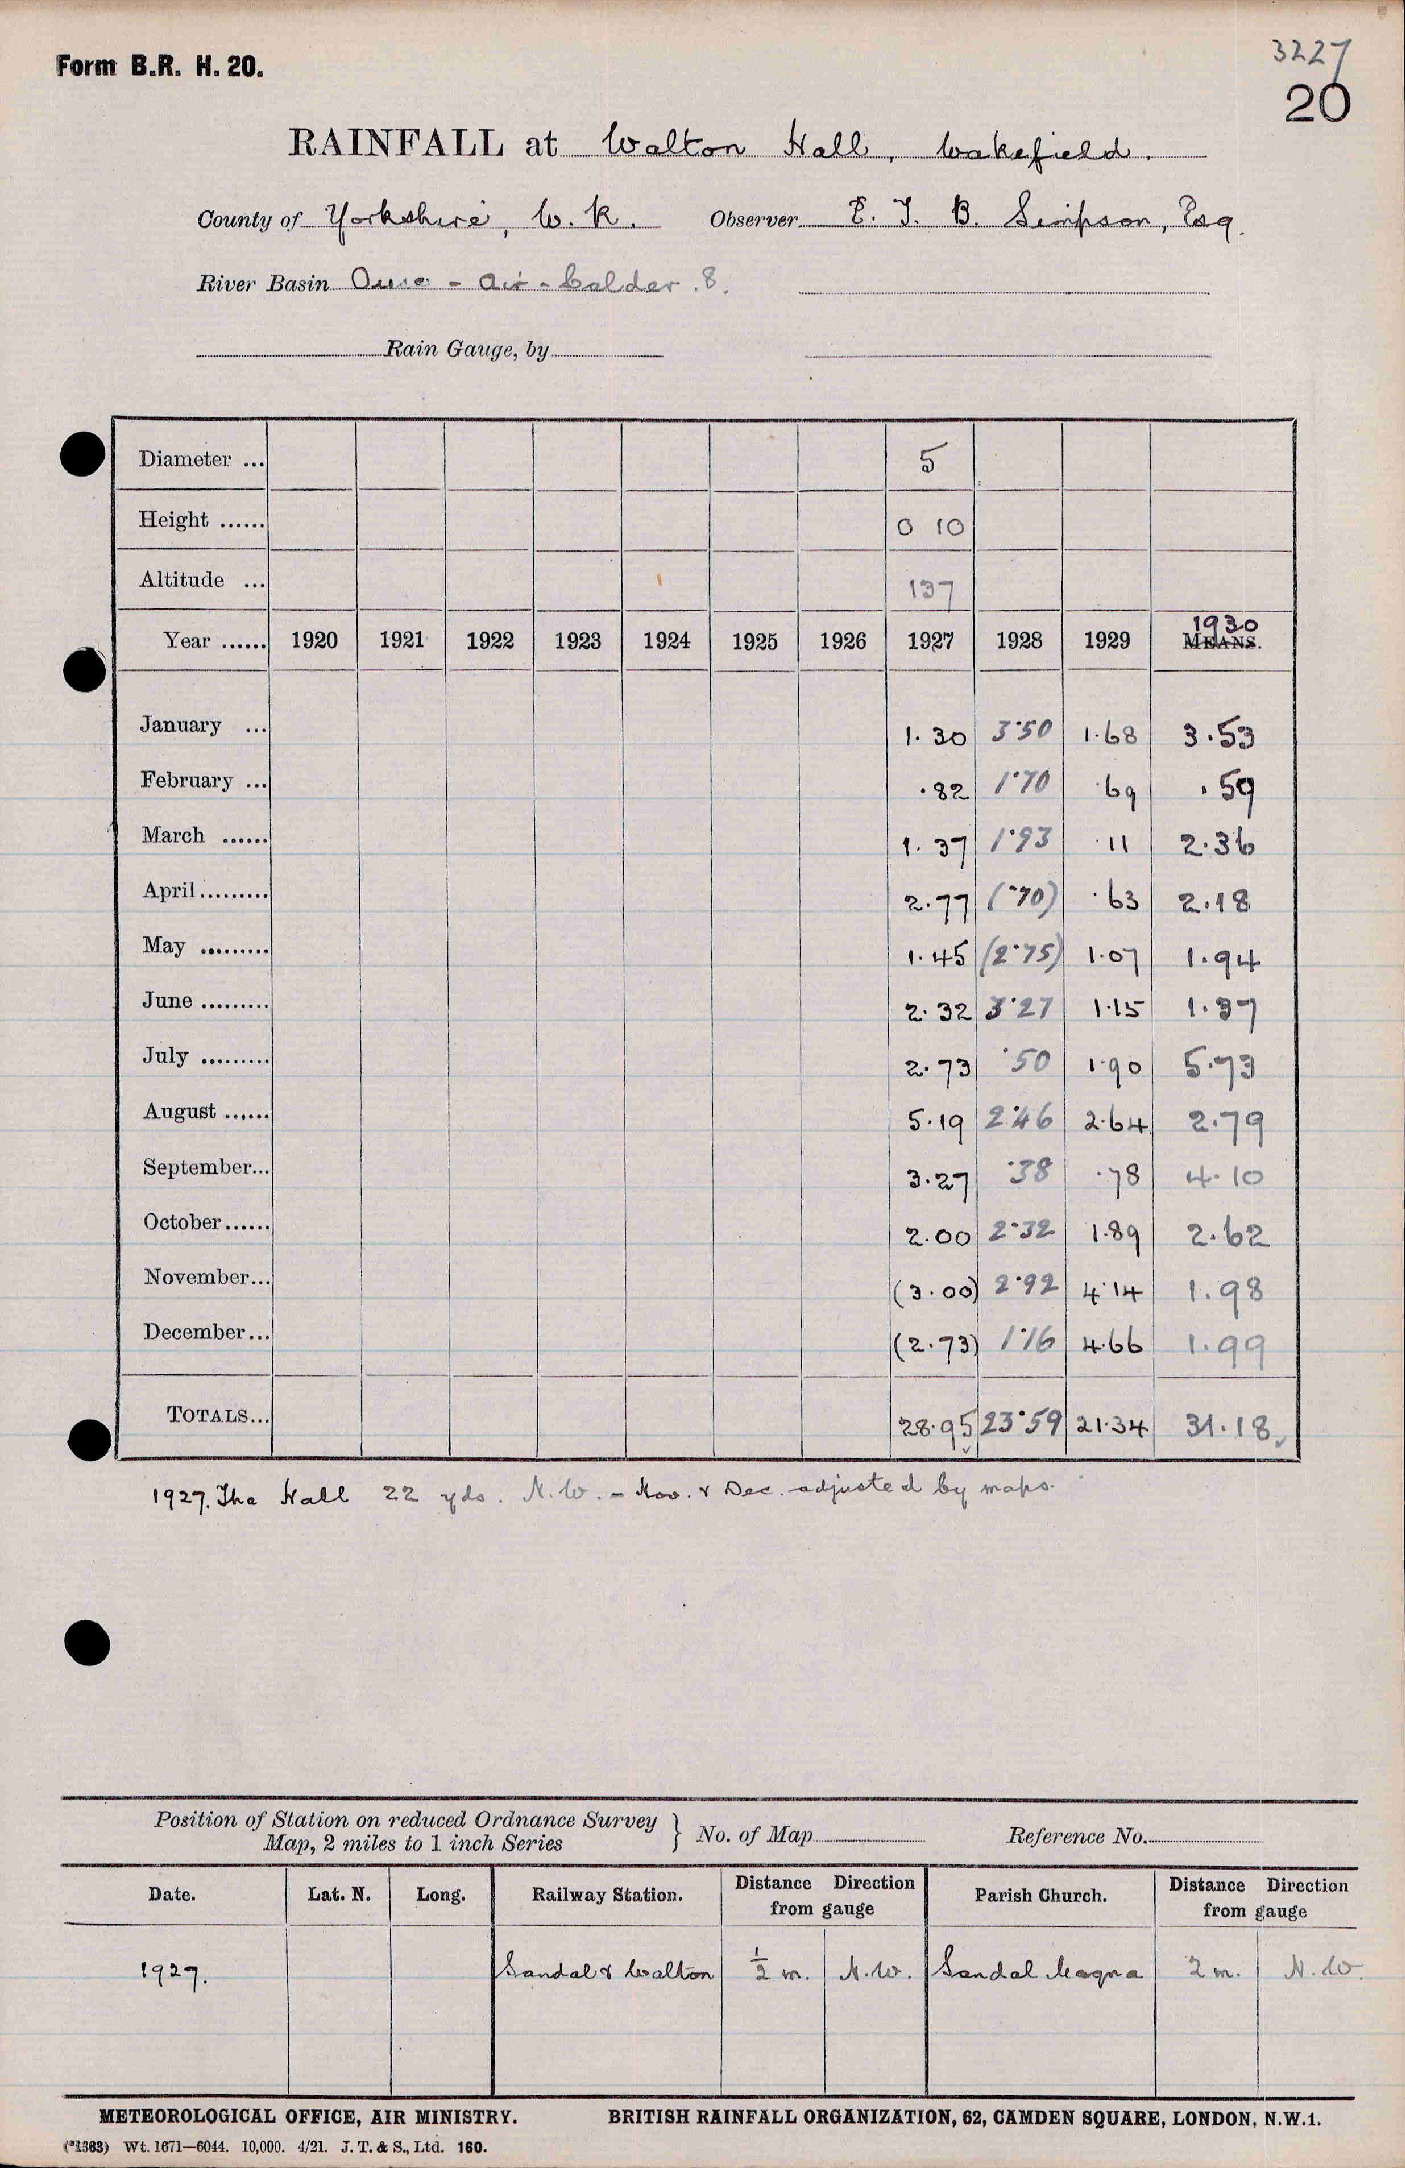 3227
Form B.R. H. 20.
20
RAINFALL at Walton Hall, Wakefield.
County of Yorkshire, W. R. Observer E. T. B. Simpson, Esq.
River Basin Ouse - Air - Calder .8.
Rain Gauge, by
Diameter ... 5
Height ...... 0 10
Altitude ... 137
1930
Year ...... 1920 1921 1922 1923 1924 1925 1926 1927 1928 1929 MEANS.
January ... 1.30 3.50 1.68 3.53
February ... .82 1.70 .69 .59
March ...... 1.37 1.93 .11 2.36
April......... 2.77 (.70) .63 2.18
May ......... 1.45 (2.75) 1.07 1.94
June ......... 2.32 3.27 1.15 1.37
July ......... 2.73 .50 1.90 5.73
August ...... 5.19 2.46 2.64 2.79
September... 3.27 .38 .78 4.10
October...... 2.00 2.32 1.89 2.62
November... (3.00) 2.92 4.14 1.98
December... (2.73) 1.16 4.66 1.99
TOTALS... 28.95 23.59 21.34 31.18
1927. The Hall 22 yds. N.W. - Nov. & Dec. adjusted by maps.
Position of Station on reduced Ordnance Survey
Map, 2 miles to 1 inch Series } No. of Map Reference No.
Date. Lat. N. Long. Railway Station. Distance Direction from gauge Parish Church. Distance Direction from gauge
1927. Sandal & Walton ½ m. N.W. Sandal Magna 2 m. N.W.
METEOROLOGICAL OFFICE, AIR MINISTRY. BRITISH RAINFALL ORGANIZATION, 62, CAMDEN SQUARE, LONDON, N.W.1.
(*1383) Wt. 1671—6044. 10,000. 4/21. J. T. & S., Ltd. 160.